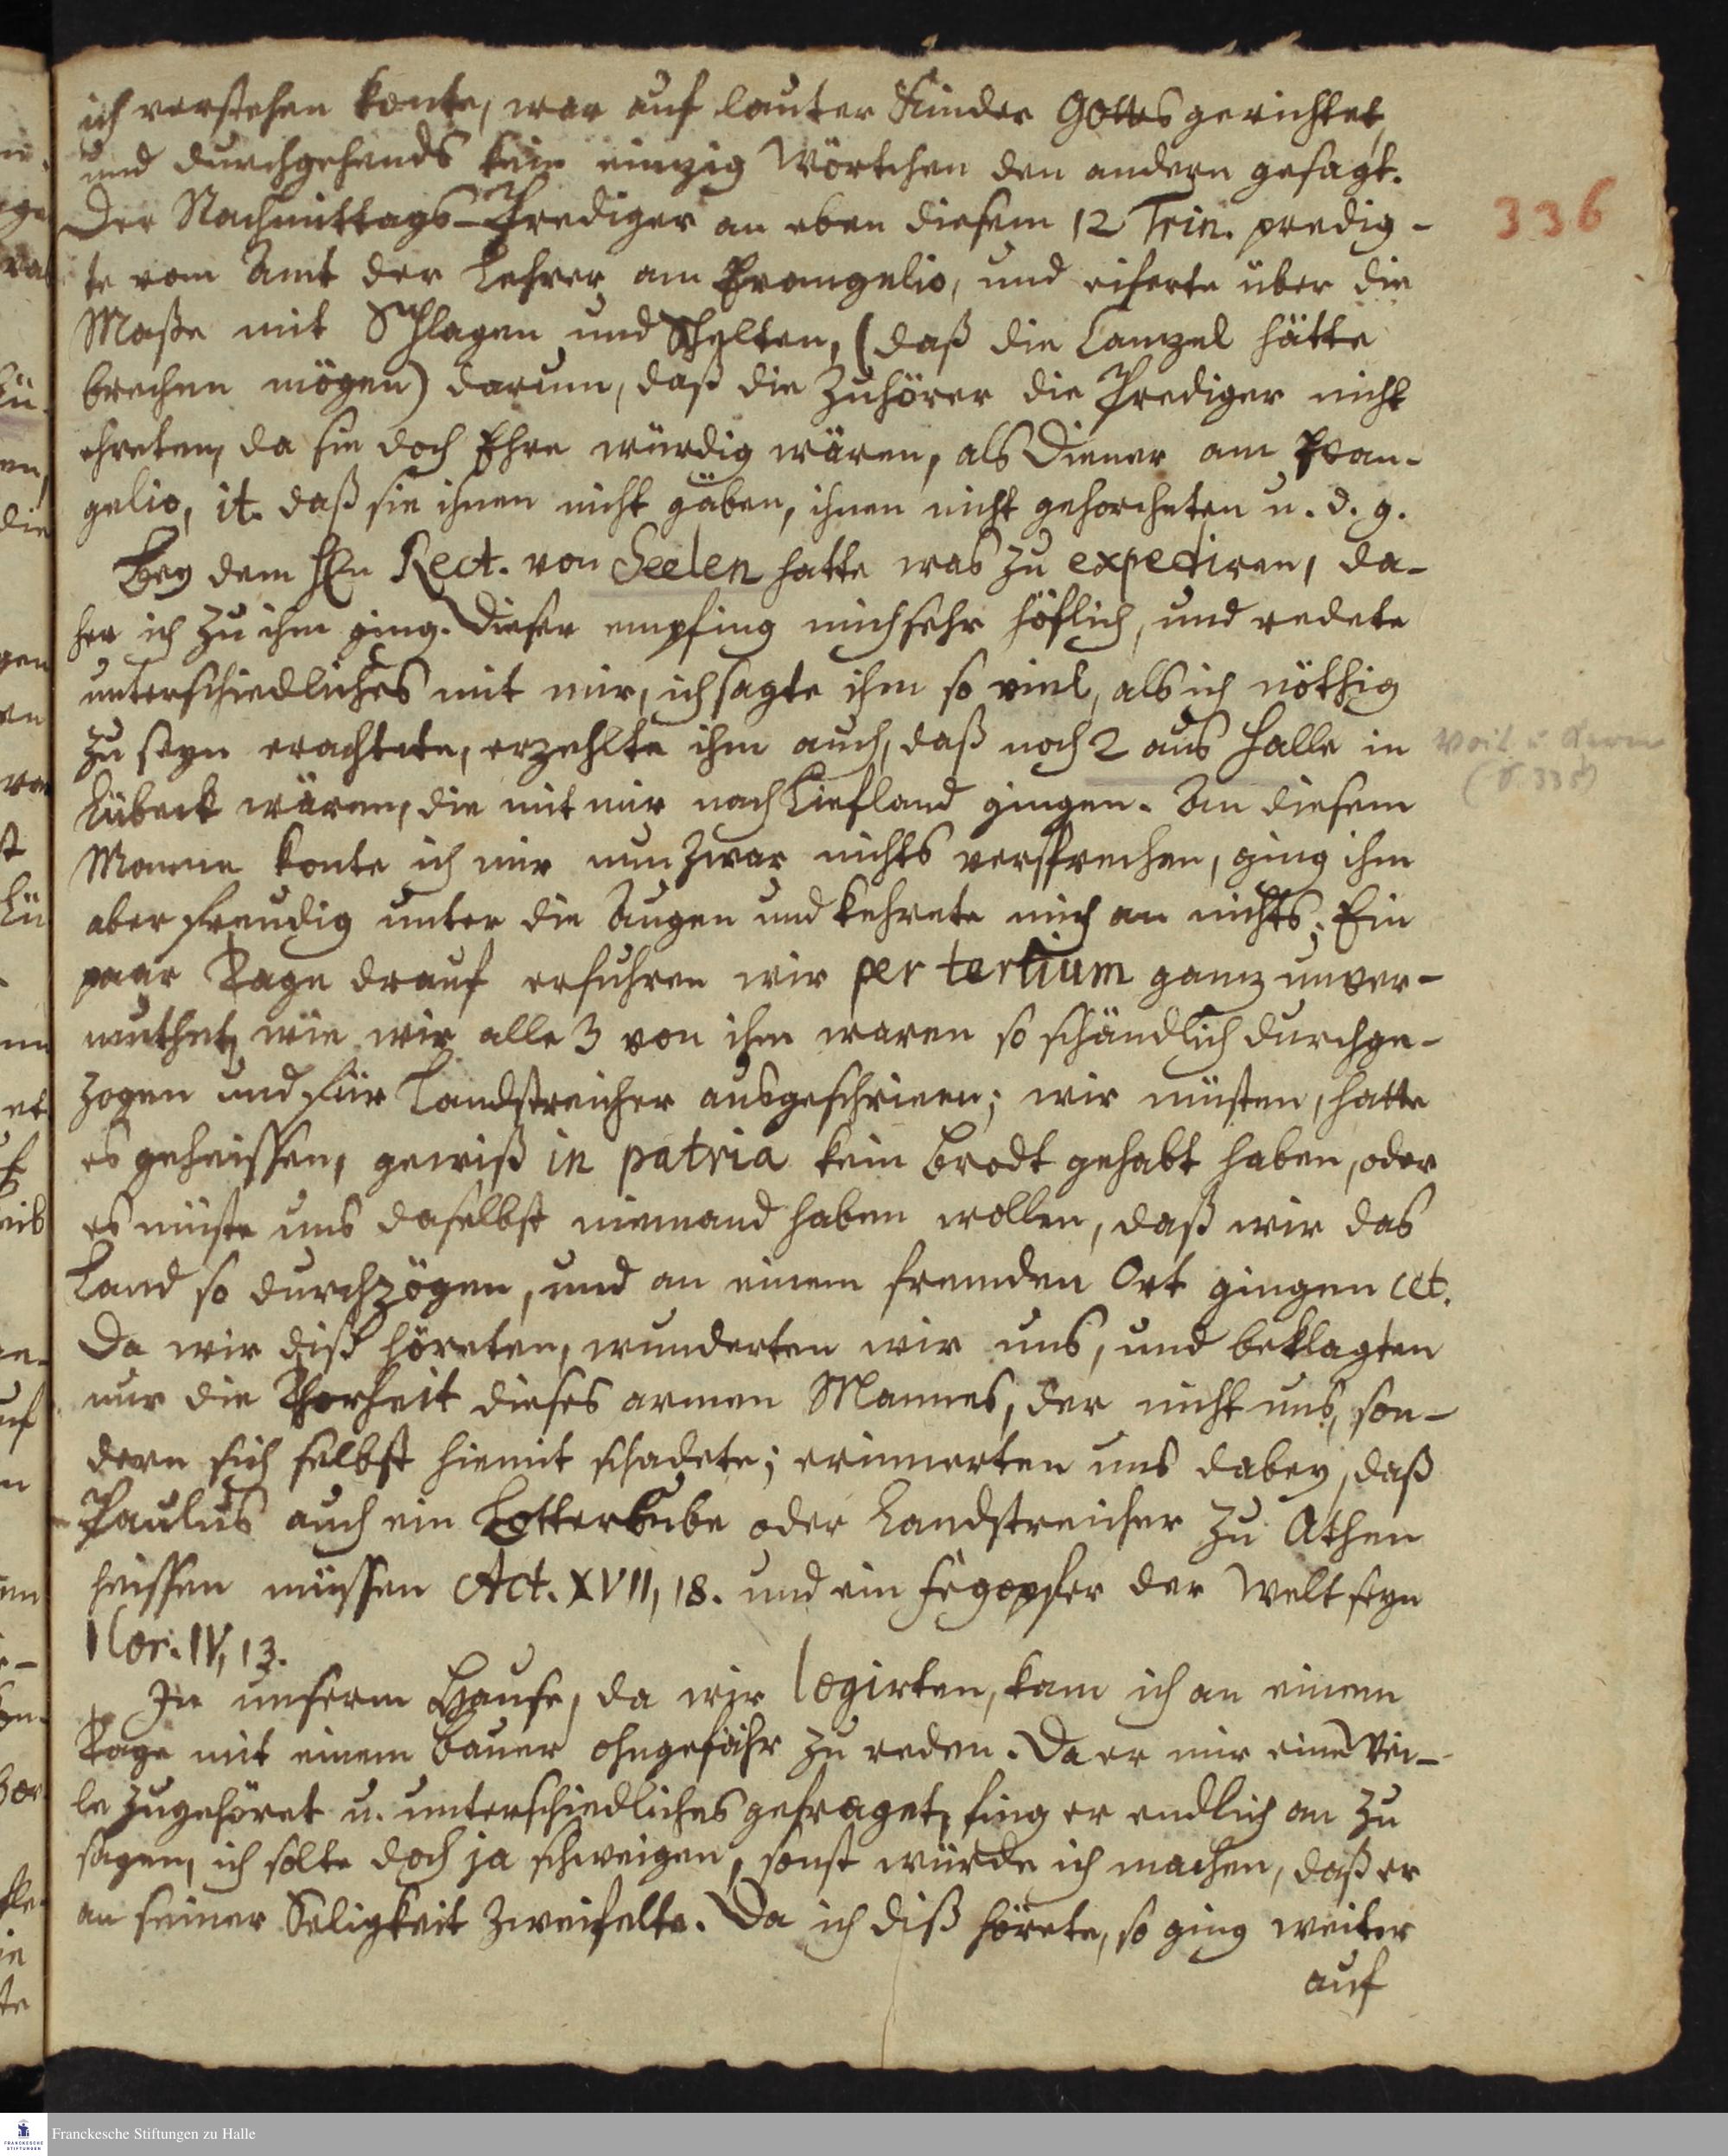 ich verstehen konte, war auf lauter Kinder Gottes gerichtet,
und durchgehends kein eintzig Wörtchen den andern gesagt.
Der Nachmittags-Prediger an eben diesem 12 Trin. predig-
te vom Amt der Lehrer am Evangelio, und eiferte über die
Maße mit Schlagen und Schelten, (daß die Cantzel hätte
brechen mögen) darum, daß die Zuhörer die Prediger nicht
ehreten, da sie doch Ehre würdig wären, als Diener am Evan-
gelio, it. daß sie ihnen nicht gäben, ihnen nicht gehorcheten u. d. g.
Bey dem HEn Rect. von Seelen hatte was zu expediren, da-
her ich zu ihm ging. Dieser empfing mich sehr höflich, und redete
unterschiedliches mit mir, ich sagte ihm so viel, als ich nöthig
zu seyn erachtete, erzehlte ihm auch, daß noch 2 aus Halle in
Lübeck wären, die mit mir nach Liefland gingen. An diesem
Manne konte ich mir nun zwar nichts versprechen, ging ihm
aber freudig unter die Augen und kehrete mich an nichts. Ein
paar Tage drauf erfuhren wir per tertium gantz unver-
muthet, wie wir alle 3 von ihm waren so schändlich durchge-
zogen und für Landstreicher ausgeschrieen; wir müsten, hatte
es geheissen, gewiß in patria kein Brodt gehabt haben, oder
es müste uns daselbst niemand haben wollen, daß wir das
Land so durchzögen, und an einem fremden Ort gingen cet.
Da wir diß höreten, wunderten wir uns, und beklagten
nur die Thorheit dieses armen Mannes, der nicht uns, son-
dern sich selbst hiemit schadete; erinnerten uns dabey, daß
Paulus auch ein Lotterbube oder Landstreicher zu Athen
heissen müssen Act. XVII, 18. und ein Fegopfer der Welt seyn
1 Cor. IV, 13.
In unserm Hause, da wir logirten, kam ich an einem
Tage mit einem Bauer ohngefähr zu reden. Da er mir eine Wei-
le zugehöret u. unterschiedliches gefraget, fing er endlich an zu
sagen, ich solte doch ja schweigen, sonst würde ich machen, daß er
an seiner Seligkeit zweifelte. Da ich diß hörete, so ging weiter
auf
336
(S. 335)
Franckesche Stiftungen zu Halle